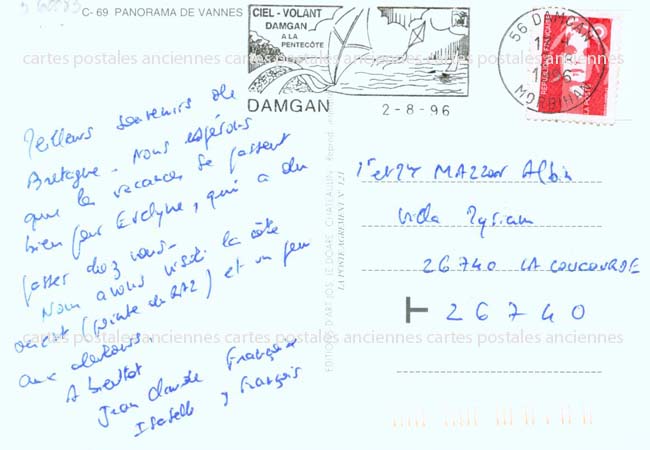 C- 69 PANORAMA DE VANNES
CIEL - VOLANT
DAMGAN
A LA
PENTECÔTE
DAMGAN
2 - 8 - 96
56 DAMGAN
MORBIHAN
cartes postales anciennes cartes postales anciennes cartes postales anciennes
Meilleurs souvenirs de
Bretagne - Nous espérons
que les vacances se passent
bien pour Evelyne, qui a du
passer chez vous -
Nous avons visité la côte
ouest (pointe du RAZ) et un peu
aux alentours.
A bientôt
Jean Claude Françoise
Isabelle y François
EDITIONS D'ART JOS LE DOARE, CHATEAULIN
LA POSTE AGREMENT N° 121
MAZZON Albin
Villa Myriam
26740 LA COUCOURDE
26740
cartes postales anciennes cartes postales anciennes cartes postales anciennes